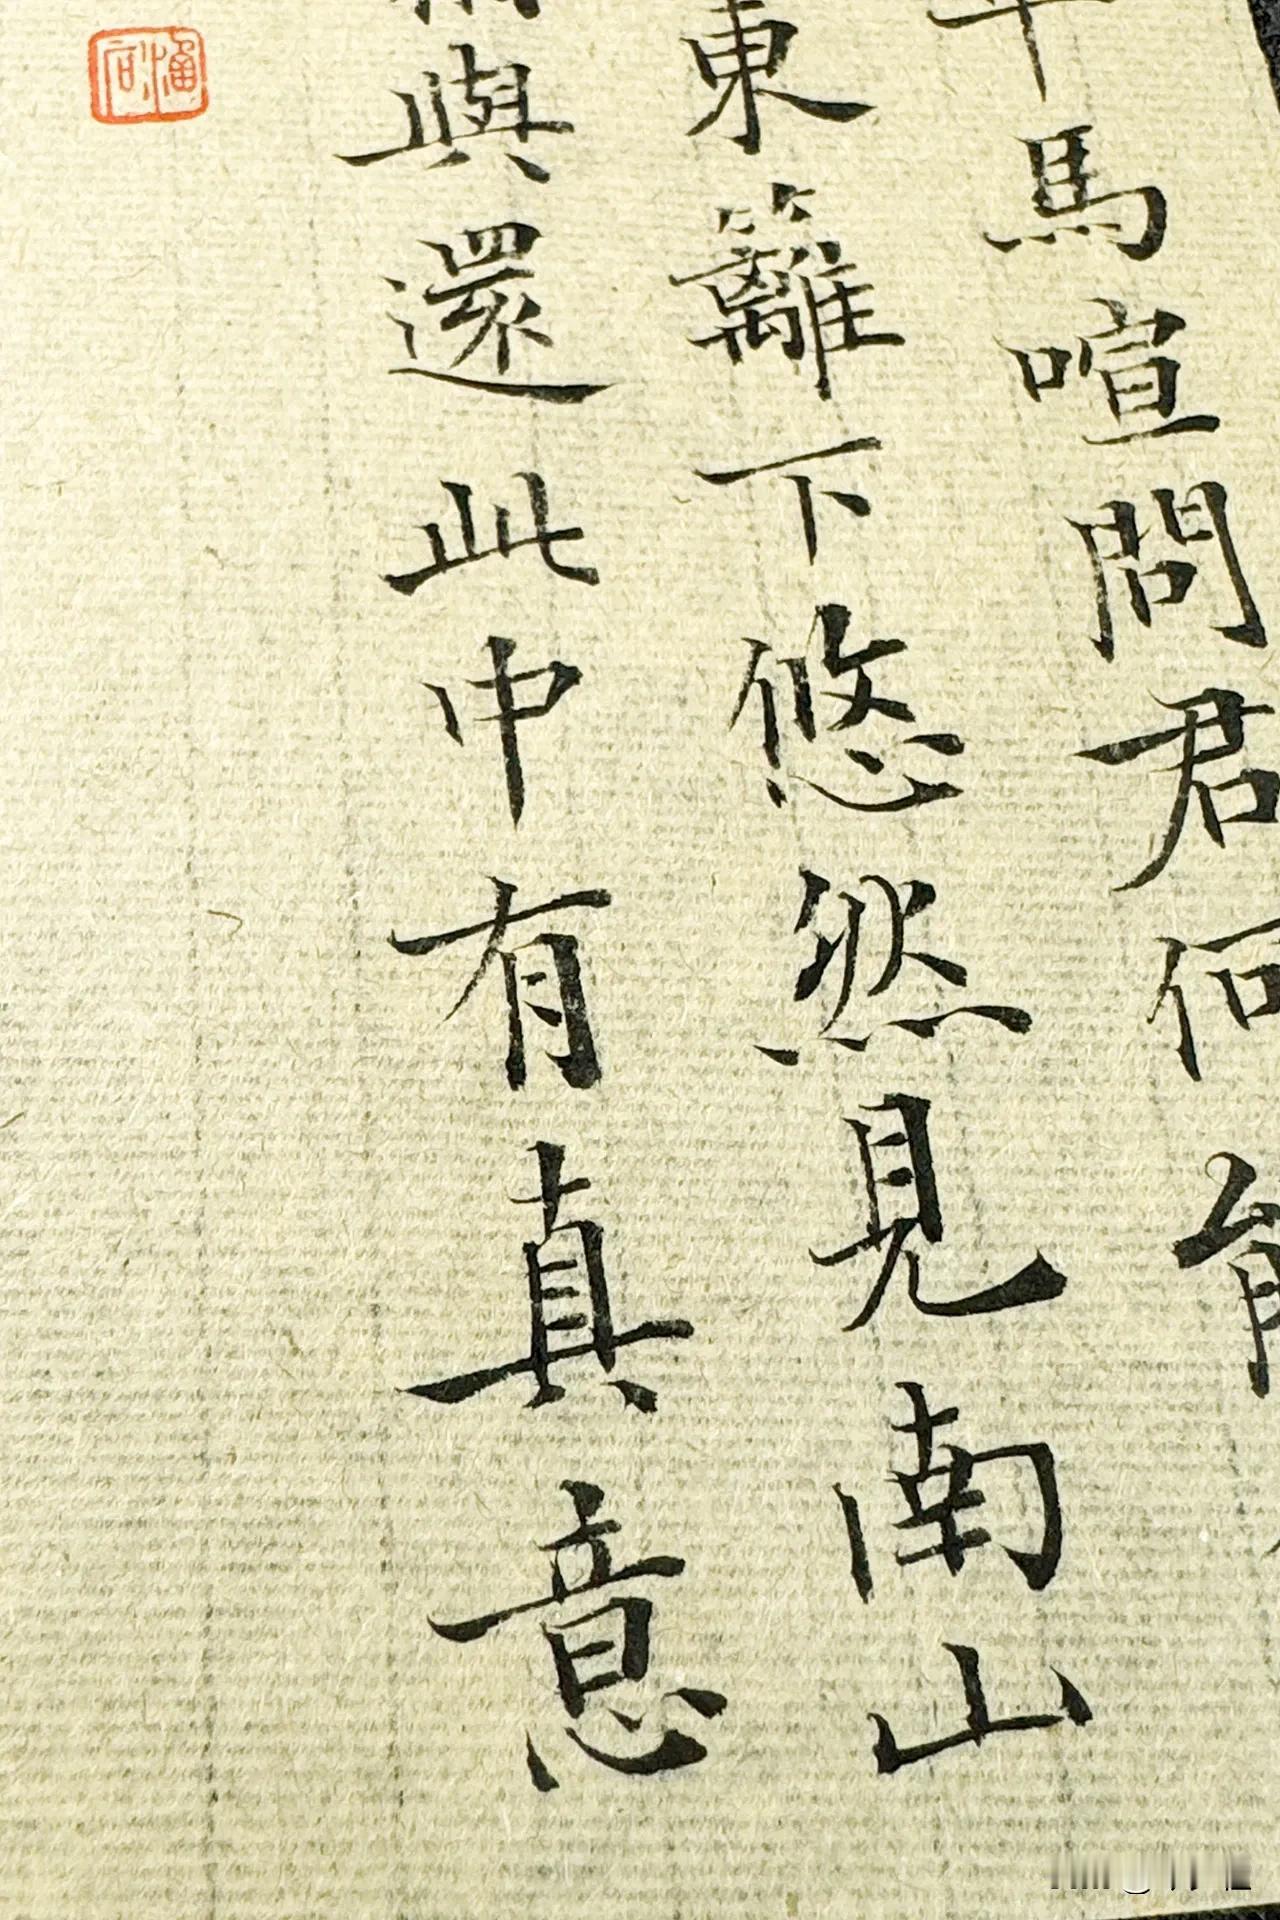 車馬喧問君何能
東籬下悠然見南山
與還此中有真意